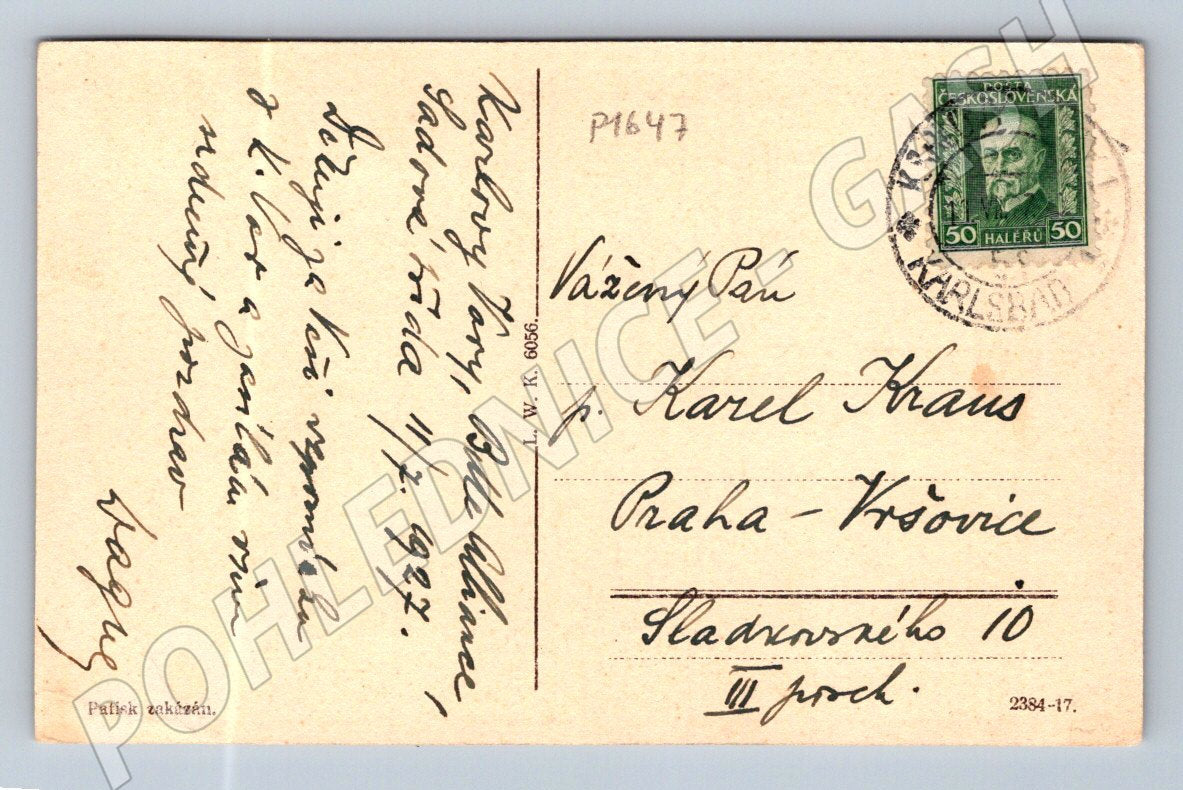 Karlovy Vary, Belle Alliance,
Sadová třída 11/7. 1927.
Děkuji za Vaši vzpomínku
z K. Var a zasílám Vám
srdečný pozdrav
Wagner
Patisk zakázán.
L. W. K. 6056.
P1647
POŠTA
ČESKOSLOVENSKÁ
50 HALÉŘŮ 50
KARLSBAD
Vážený Pán
p. Karel Kraus
Praha - Vršovice
Sladkovského 10
III posch.
2384-17.
POHLEDNICE - GASH